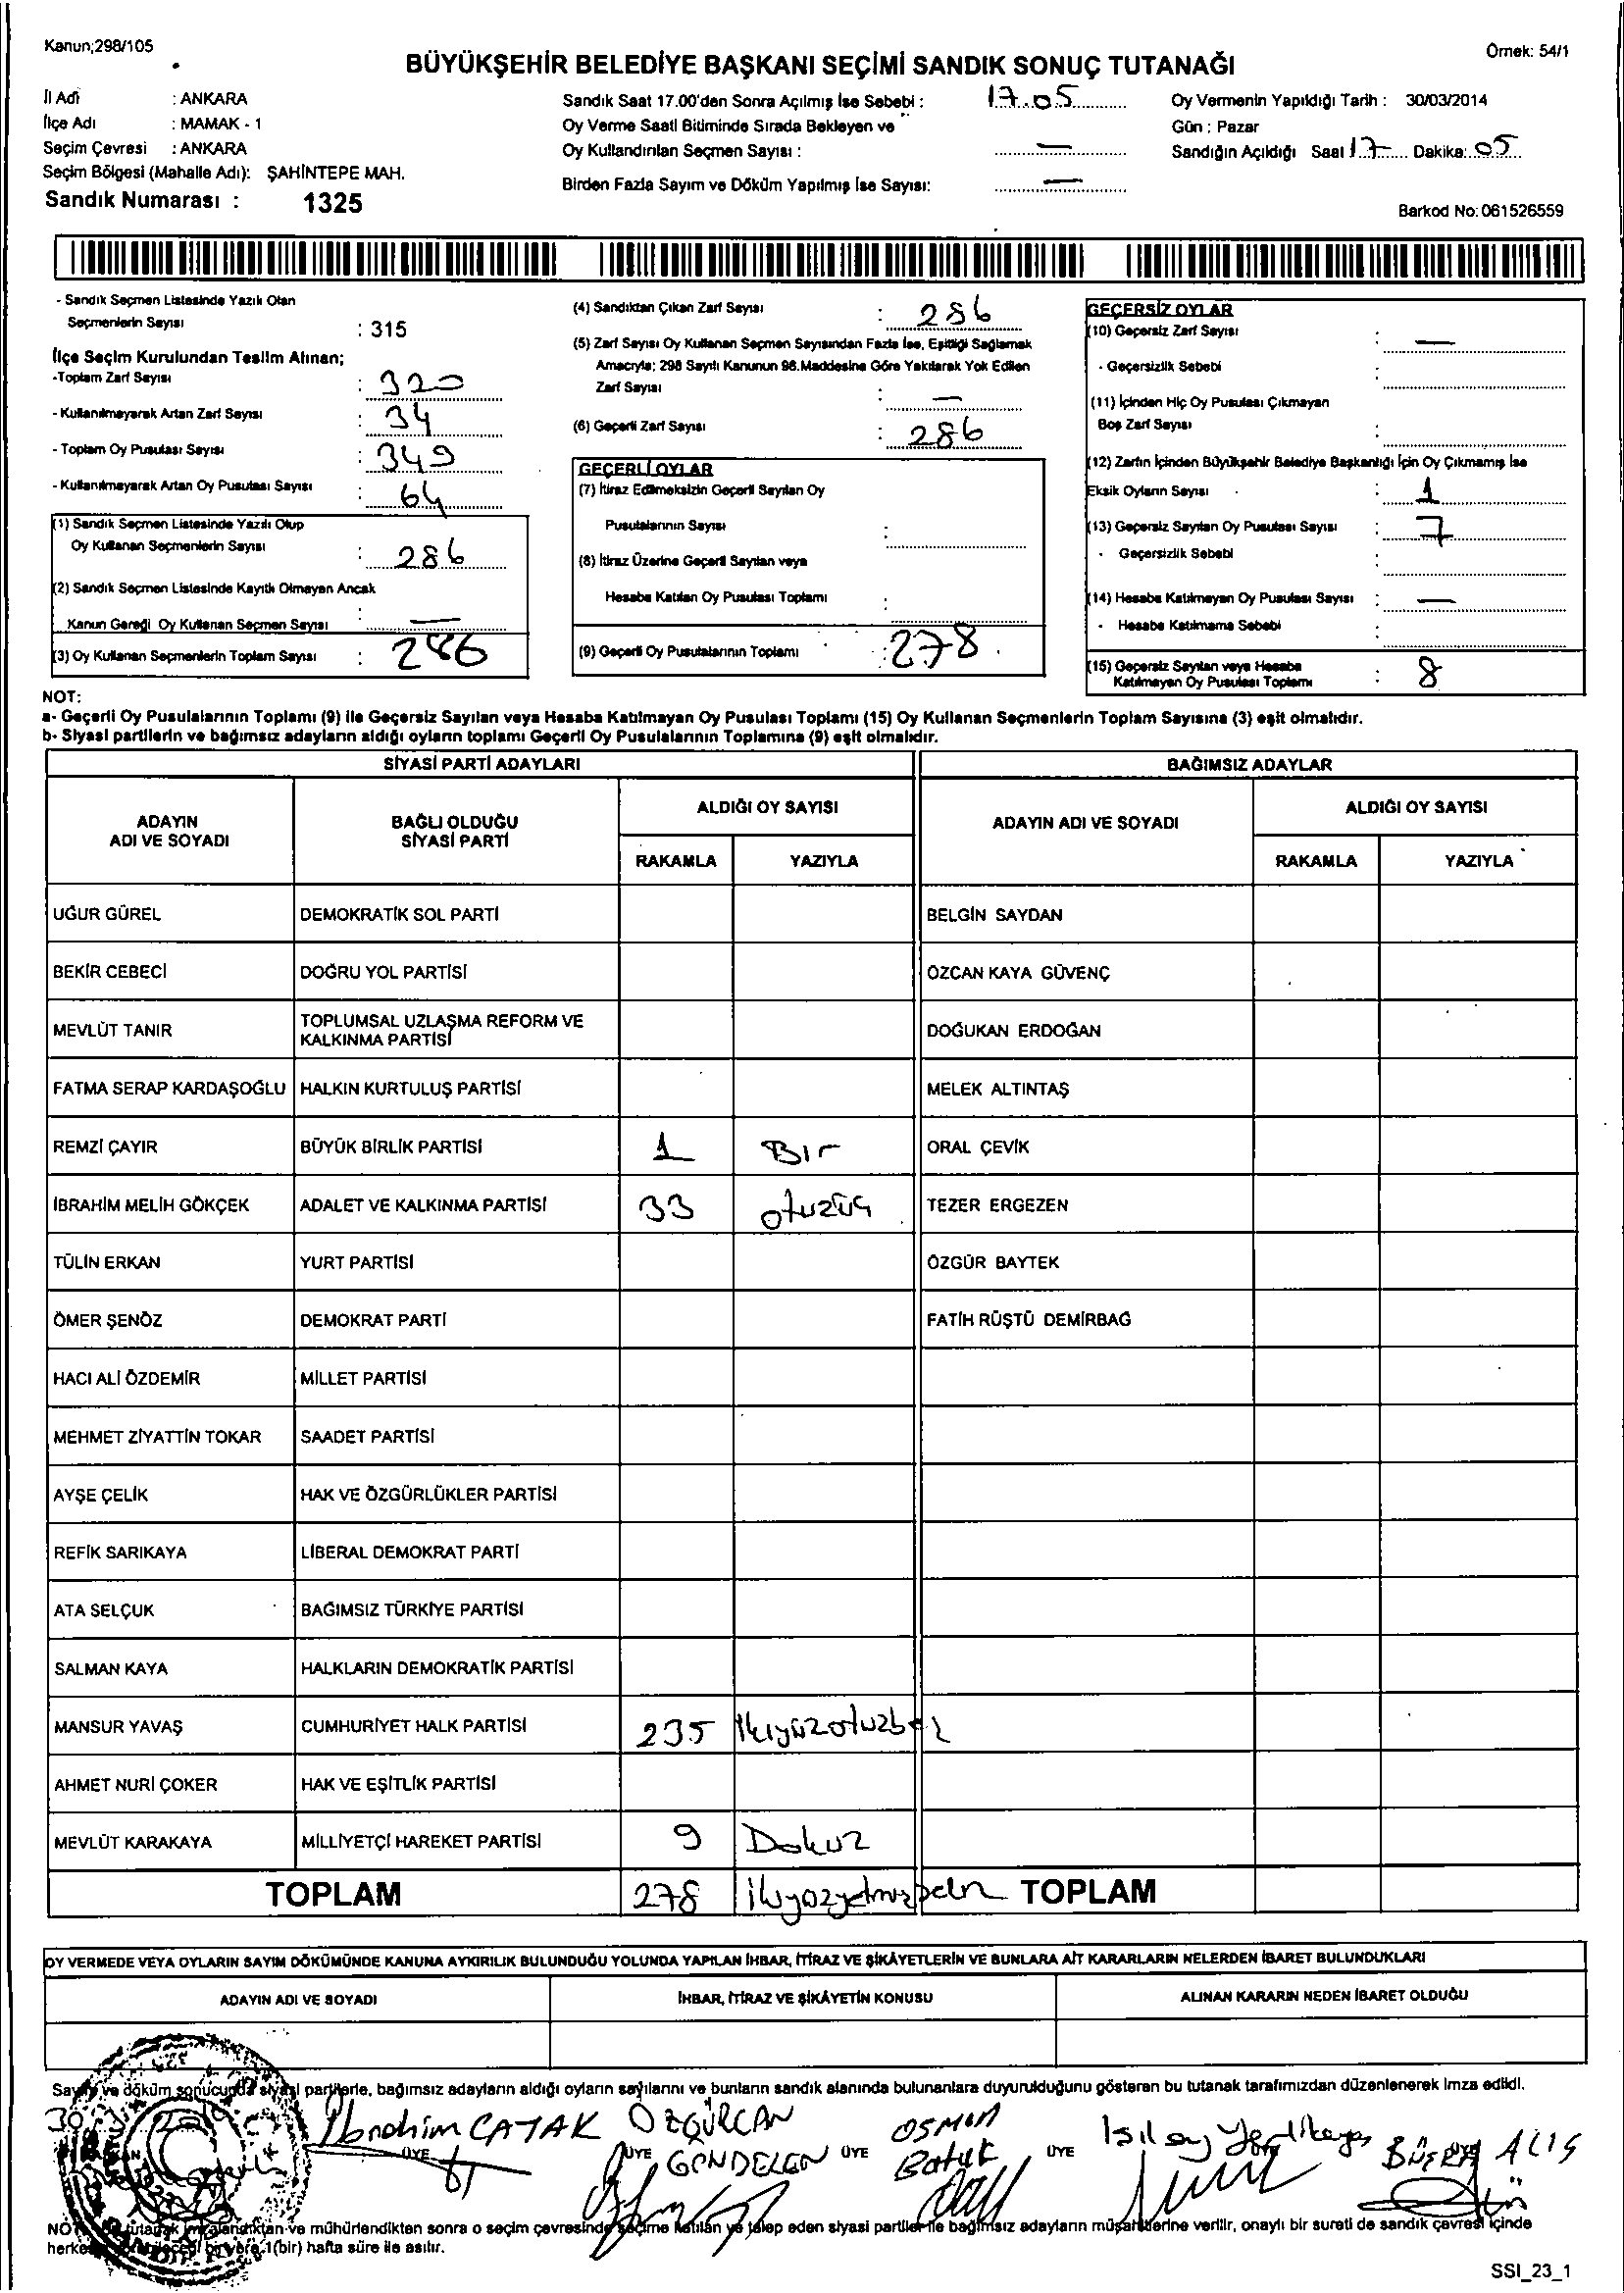 Kanun;298/105
Örnek: 54/1
BÜYÜKŞEHİR BELEDİYE BAŞKANI SEÇİMİ SANDIK SONUÇ TUTANAĞI
İl Adı : ANKARA
İlçe Adı : MAMAK - 1
Seçim Çevresi : ANKARA
Seçim Bölgesi (Mahalle Adı): ŞAHİNTEPE MAH.
Sandık Numarası : 1325
Sandık Saat 17.00'den Sonra Açılmış İse Sebebi : 17.05
Oy Verme Saati Bitiminde Sırada Bekleyen ve
Oy Kullandırılan Seçmen Sayısı : —
Birden Fazla Sayım ve Döküm Yapılmış İse Sayısı: —
Oy Vermenin Yapıldığı Tarih : 30/03/2014
Gün : Pazar
Sandığın Açıldığı Saat 17 Dakika: 05
Barkod No: 061526559
- Sandık Seçmen Listesinde Yazılı Olan
Seçmenlerin Sayısı : 315
İlçe Seçim Kurulundan Teslim Alınan;
-Toplam Zarf Sayısı : 320
- Kullanılmayarak Artan Zarf Sayısı : 34
- Toplam Oy Pusulası Sayısı : 349
- Kullanılmayarak Artan Oy Pusulası Sayısı : 64
(1) Sandık Seçmen Listesinde Yazılı Olup
Oy Kullanan Seçmenlerin Sayısı : 286
(2) Sandık Seçmen Listesinde Kayıtlı Olmayan Ancak
Kanun Gereği Oy Kullanan Seçmen Sayısı : —
(3) Oy Kullanan Seçmenlerin Toplam Sayısı : 286
(4) Sandıktan Çıkan Zarf Sayısı : 286
(5) Zarf Sayısı Oy Kullanan Seçmen Sayısından Fazla İse, Eşitliği Sağlamak
Amacıyla; 298 Sayılı Kanunun 98.Maddesine Göre Yakılarak Yok Edilen
Zarf Sayısı : —
(6) Geçerli Zarf Sayısı : 286
GEÇERLİ OYLAR
(7) İtiraz Edilmeksizin Geçerli Sayılan Oy
Pusulalarının Sayısı :
(8) İtiraz Üzerine Geçerli Sayılan veya
Hesaba Katılan Oy Pusulası Toplamı :
(9) Geçerli Oy Pusulalarının Toplamı : 278
GEÇERSİZ OYLAR
(10) Geçersiz Zarf Sayısı : —
- Geçersizlik Sebebi :
(11) İçinden Hiç Oy Pusulası Çıkmayan
Boş Zarf Sayısı :
(12) Zarfın İçinden Büyükşehir Belediye Başkanlığı İçin Oy Çıkmamış İse
Eksik Oyların Sayısı : 1
(13) Geçersiz Sayılan Oy Pusulası Sayısı : 7
- Geçersizlik Sebebi :
(14) Hesaba Katılmayan Oy Pusulası Sayısı : —
- Hesaba Katılmama Sebebi :
(15) Geçersiz Sayılan veya Hesaba
Katılmayan Oy Pusulası Toplamı : 8
NOT:
a- Geçerli Oy Pusulalarının Toplamı (9) ile Geçersiz Sayılan veya Hesaba Katılmayan Oy Pusulası Toplamı (15) Oy Kullanan Seçmenlerin Toplam Sayısına (3) eşit olmalıdır.
b- Siyasi partilerin ve bağımsız adayların aldığı oyların toplamı Geçerli Oy Pusulalarının Toplamına (9) eşit olmalıdır.
SİYASİ PARTİ ADAYLARI BAĞIMSIZ ADAYLAR
ADAYIN ADI VE SOYADI BAĞLI OLDUĞU SİYASİ PARTİ ALDIĞI OY SAYISI ADAYIN ADI VE SOYADI ALDIĞI OY SAYISI
RAKAMLA YAZIYLA RAKAMLA YAZIYLA
UĞUR GÜREL DEMOKRATİK SOL PARTİ BELGİN SAYDAN
BEKİR CEBECİ DOĞRU YOL PARTİSİ ÖZCAN KAYA GÜVENÇ
MEVLÜT TANIR TOPLUMSAL UZLAŞMA REFORM VE KALKINMA PARTİSİ DOĞUKAN ERDOĞAN
FATMA SERAP KARDAŞOĞLU HALKIN KURTULUŞ PARTİSİ MELEK ALTINTAŞ
REMZİ ÇAYIR BÜYÜK BİRLİK PARTİSİ 1 Bir ORAL ÇEVİK
İBRAHİM MELİH GÖKÇEK ADALET VE KALKINMA PARTİSİ 33 otuzüç TEZER ERGEZEN
TÜLİN ERKAN YURT PARTİSİ ÖZGÜR BAYTEK
ÖMER ŞENÖZ DEMOKRAT PARTİ FATİH RÜŞTÜ DEMİRBAĞ
HACI ALİ ÖZDEMİR MİLLET PARTİSİ
MEHMET ZİYATTİN TOKAR SAADET PARTİSİ
AYŞE ÇELİK HAK VE ÖZGÜRLÜKLER PARTİSİ
REFİK SARIKAYA LİBERAL DEMOKRAT PARTİ
ATA SELÇUK BAĞIMSIZ TÜRKİYE PARTİSİ
SALMAN KAYA HALKLARIN DEMOKRATİK PARTİSİ
MANSUR YAVAŞ CUMHURİYET HALK PARTİSİ 235 ikiyüzotuzbeş
AHMET NURİ ÇOKER HAK VE EŞİTLİK PARTİSİ
MEVLÜT KARAKAYA MİLLİYETÇİ HAREKET PARTİSİ 9 Dokuz
TOPLAM 278 TOPLAM
OY VERMEDE VEYA OYLARIN SAYIM DÖKÜMÜNDE KANUNA AYKIRILIK BULUNDUĞU YOLUNDA YAPILAN İHBAR, İTİRAZ VE ŞİKÂYETLERİN VE BUNLARA AİT KARARLARIN NELERDEN İBARET BULUNDUKLARI
ADAYIN ADI VE SOYADI İHBAR, İTİRAZ VE ŞİKÂYETİN KONUSU ALINAN KARARIN NEDEN İBARET OLDUĞU
Sayım ve döküm sonucunda siyasi partilerle, bağımsız adayların aldığı oyların sayılarını ve bunların sandık alanında bulunanlara duyurulduğunu gösteren bu tutanak tarafımızdan düzenlenerek imza edildi.
İbrahim ÇATAK ÖZGÜRCAN OSMAN Işılay Yerlikaya
ÜYE ÜYE GÖNDELEN ÜYE Batuk ÜYE BÜŞRA ALIŞ
NOT: tutanak imzalandıktan ve mühürlendikten sonra o seçim çevresinde seçime katılan ve talep eden siyasi partiler ile bağımsız adayların müşahitlerine verilir, onaylı bir sureti de sandık çevresi içinde
1(bir) hafta süre ile asılır.
SSI_23_1